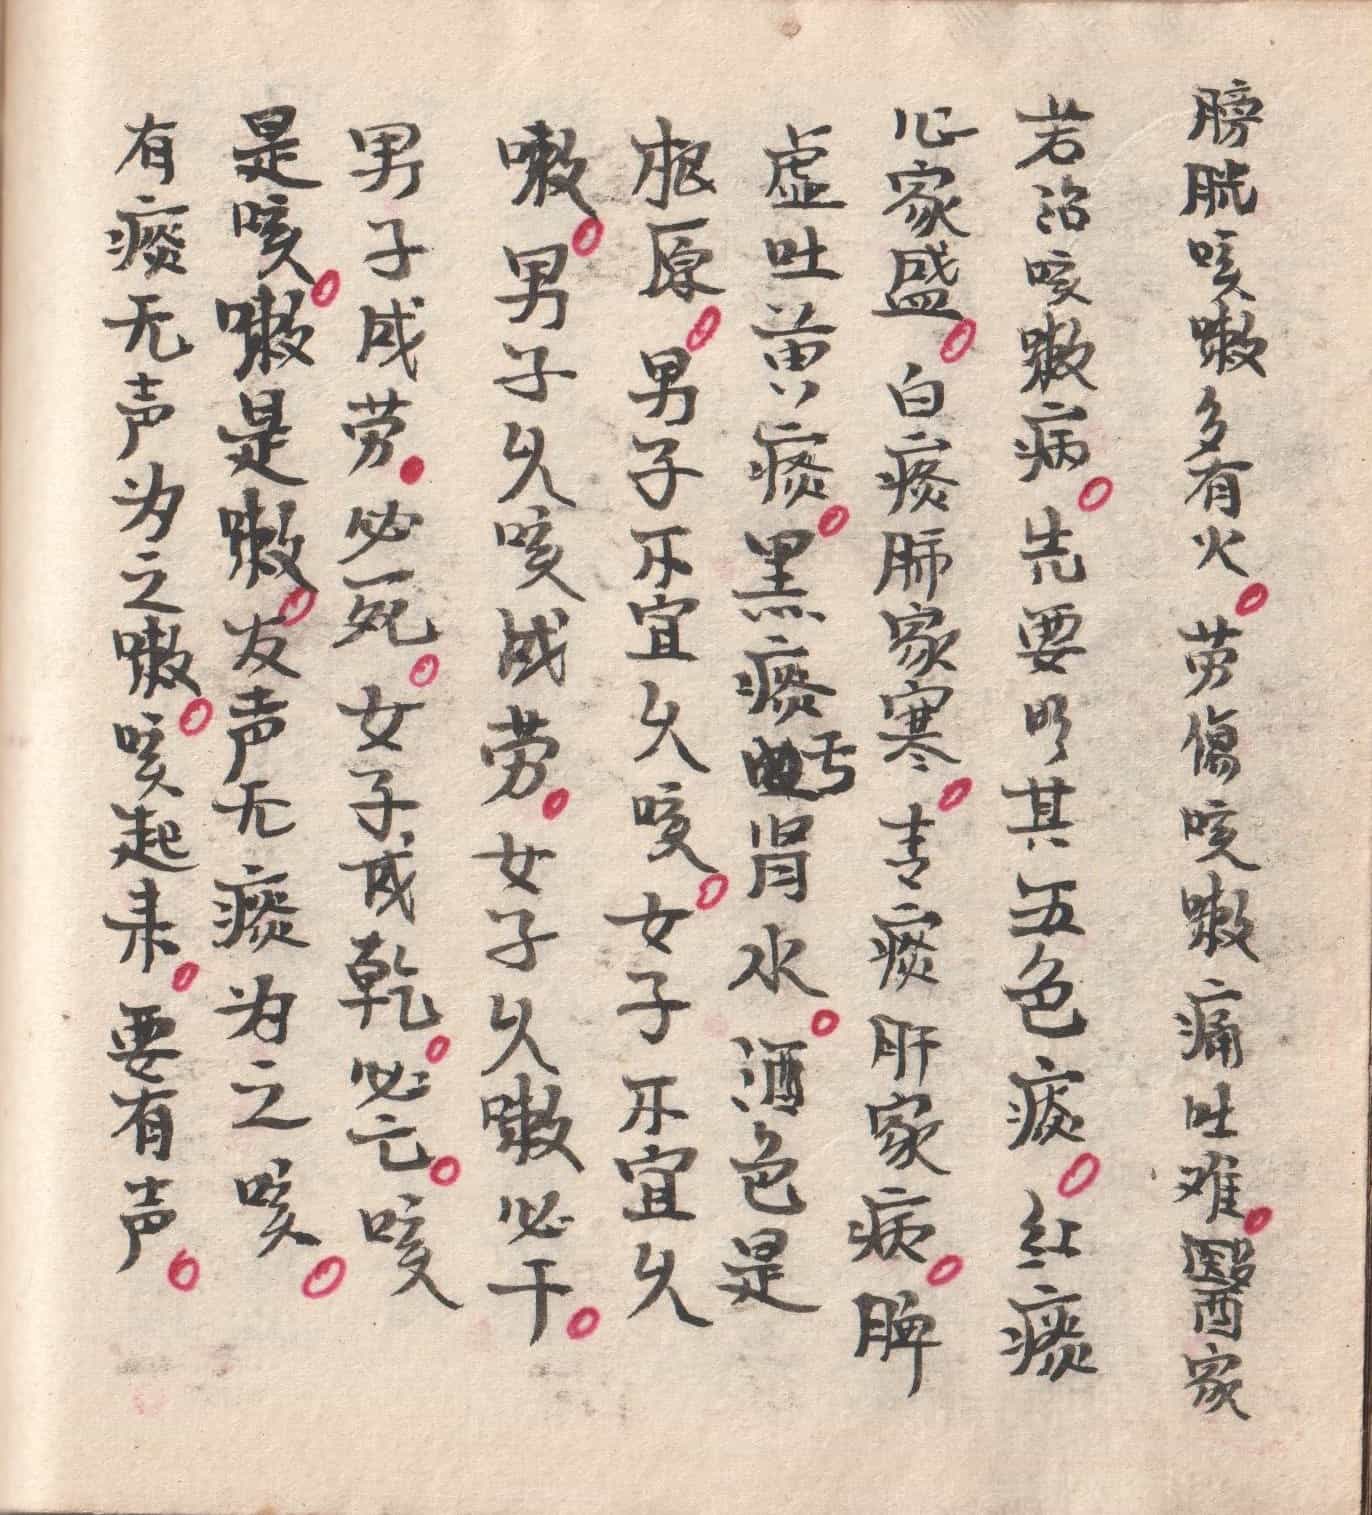 膀胱咳嗽多有火。劳傷咳嗽痛吐难。醫家
若治咳嗽病。先要明其五色痰。红痰
心家盛。白痰肺家寒。青痰肝家病。脾
虚吐黄痰。黑痰虧肾水。酒色是
根原。男子不宜久咳。女子不宜久
嗽。男子久咳成劳。女子久嗽必干。
男子成劳。必死。女子成乾。必亡。咳
是咳。嗽是嗽。友声无痰为之咳。
有痰无声为之嗽。咳起来。要有声。